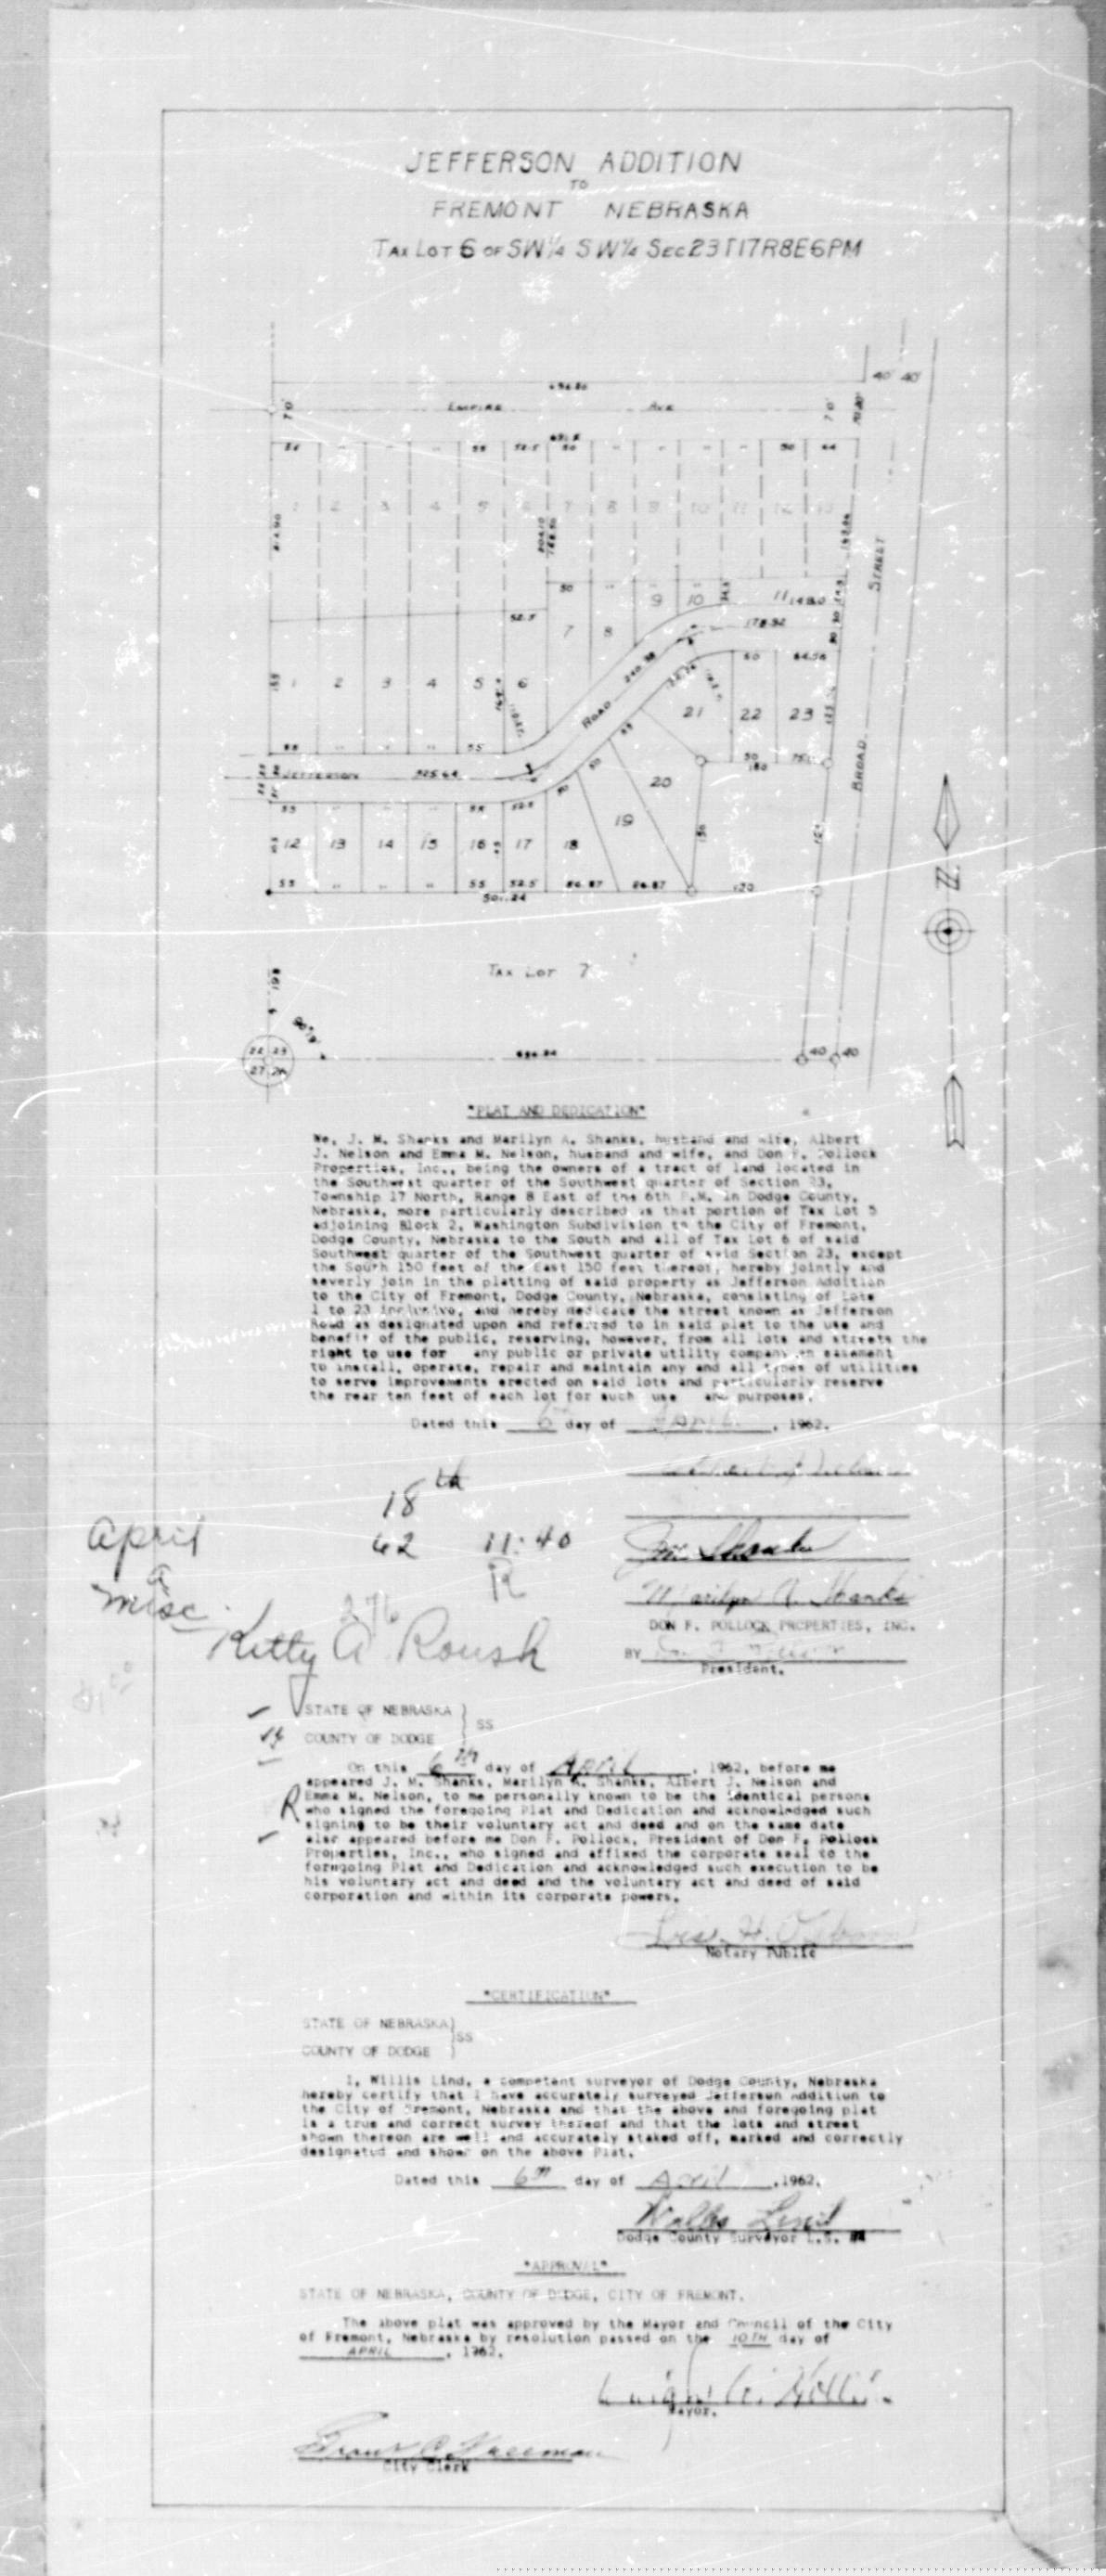 JEFFERSON ADDITION
TO
FREMONT NEBRASKA
TAX LOT 6 OF SW¼ SW¼ SEC 23 T17R8E6PM
40' 40'
EMPIRE AVE
70' 70'
55 55 52.5 50 50 44
1 2 3 4 5 6 7 8 9 10 11 12 13
STREET
50
9 10 11
52.5
7 8
178.92
1 2 3 4 5 6
ROAD
60 64.56
21 22 23
55 55
50
JEFFERSON 325.64
BROAD
20
55 55 52.5
19
12 13 14 15 16 17 18
55 55 52.5 86.87 86.87 120
501.24
N.
TAX LOT 7
22 23
27 26
40 40
"PLAT AND DEDICATION"
We, J. M. Shanks and Marilyn A. Shanks, husband and wife, Albert
J. Nelson and Emma M. Nelson, husband and wife, and Don F. Pollock
Properties, Inc., being the owners of a tract of land located in
the Southwest quarter of the Southwest quarter of Section 23,
Township 17 North, Range 8 East of the 6th P.M. in Dodge County,
Nebraska, more particularly described as that portion of Tax Lot 5
adjoining Block 2, Washington Subdivision to the City of Fremont,
Dodge County, Nebraska to the South and all of Tax Lot 6 of said
Southwest quarter of the Southwest quarter of said Section 23, except
the South 150 feet of the East 150 feet thereof, hereby jointly and
severly join in the platting of said property as Jefferson Addition
to the City of Fremont, Dodge County, Nebraska, consisting of Lots
1 to 23 inclusive, and hereby dedicate the street known as Jefferson
Road as designated upon and referred to in said plat to the use and
benefit of the public, reserving, however, from all lots and streets the
right to use for any public or private utility company an easement
to install, operate, repair and maintain any and all types of utilities
to serve improvements erected on said lots and particularly reserve
the rear ten feet of each lot for such use and purposes.
Dated this 6 day of April, 1962.
Albert J. Nelson
18th
April 62 11:40
R
J M Shanks
Misc
276
Marilyn A. Shanks
Kitty A Roush
DON F. POLLOCK PROPERTIES, INC.
BY
President.
STATE OF NEBRASKA }
SS
COUNTY OF DODGE }
On this 6th day of April, 1962, before me
appeared J. M. Shanks, Marilyn A. Shanks, Albert J. Nelson and
Emma M. Nelson, to me personally known to be the identical persons
R who signed the foregoing Plat and Dedication and acknowledged such
signing to be their voluntary act and deed and on the same date
also appeared before me Don F. Pollock, President of Don F. Pollock
Properties, Inc., who signed and affixed the corporate seal to the
foregoing Plat and Dedication and acknowledged such execution to be
his voluntary act and deed and the voluntary act and deed of said
corporation and within its corporate powers.
Notary Public
"CERTIFICATION"
STATE OF NEBRASKA)
)SS
COUNTY OF DODGE )
I, Willis Lind, a competent surveyor of Dodge County, Nebraska
hereby certify that I have accurately surveyed Jefferson Addition to
the City of Fremont, Nebraska and that the above and foregoing plat
is a true and correct survey thereof and that the lots and street
shown thereon are well and accurately staked off, marked and correctly
designated and shown on the above Plat.
Dated this 6th day of April, 1962.
Willis Lind
Dodge County Surveyor L.S.
"APPROVAL"
STATE OF NEBRASKA, COUNTY OF DODGE, CITY OF FREMONT.
The above plat was approved by the Mayor and Council of the City
of Fremont, Nebraska by resolution passed on the 10TH day of
APRIL, 1962.
Mayor.
City Clerk